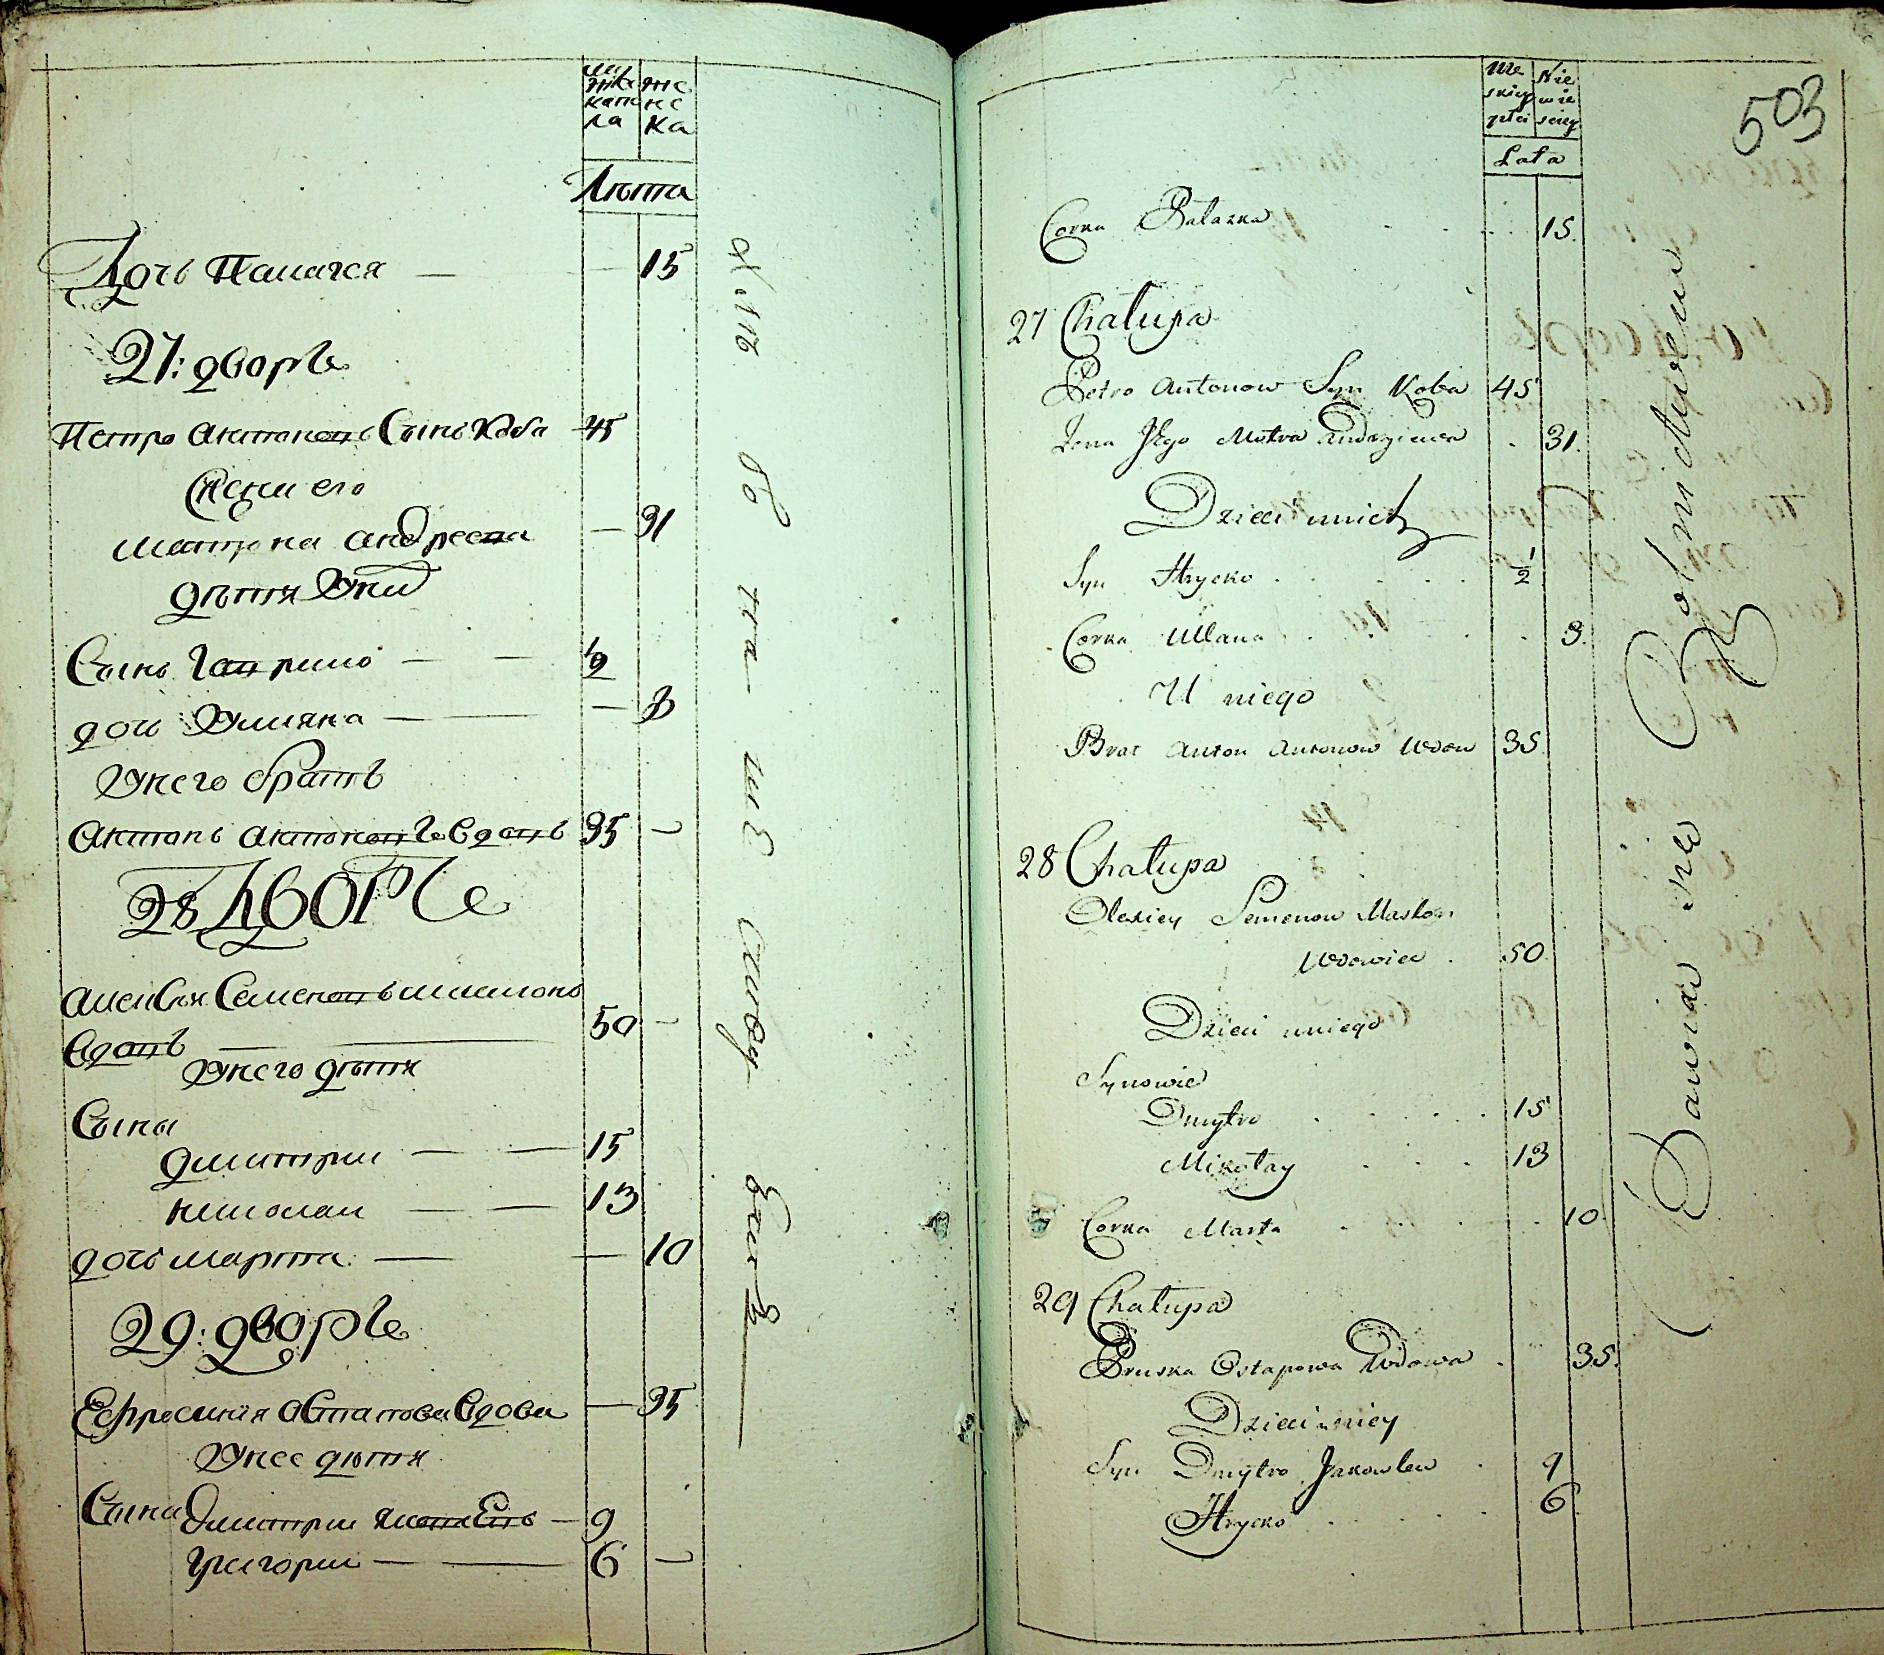 Мужеска пола
женска
Лѣта
Дочь Палагея — — 15
27: дворъ
Петро Антоновъ Сынъ Коба 45
Жена его
Матрона Андреева — 31
дѣти у них
Сынъ Гаврило — — ½
дочь Улияна — — — 3
У него братъ
Антонъ Антоновъ вдовъ 35 —
28 ДВОРЪ
Алексѣй Семеновъ
вдовъ — — 50 —
У него дѣти
Сыны
Дмитрии — — 15
Николаи — — 13
дочь Марта — — 10
29: дворъ
Ефросиния Остапова вдова — 35
У нее дѣти
Сыны Дмитрии Яковлевъ — 9
Григории — — 6 —
503
Męskiey płci
Niewieściey
Lata
Corka Palazka 15.
27 Chałupa
Petro Antonow Syn Koba 45
Żona Jego Motra Andrzieiewa 31.
Dzieci u nich
Syn Hrycko ½
Corka Ullana 3.
U niego
Brat Anton Antonow Wdow 35
28 Chałupa
Olexiey Semenow
Wdowiec 50
Dzieci u niego
Synowie
Dmytro 15
Mikołay 13
Corka Marta 10.
29 Chałupa
Pruska Ostapowa Wdowa 35.
Dzieci u niey
Syn Dmytro Jakowlew 9
Hrycko 6